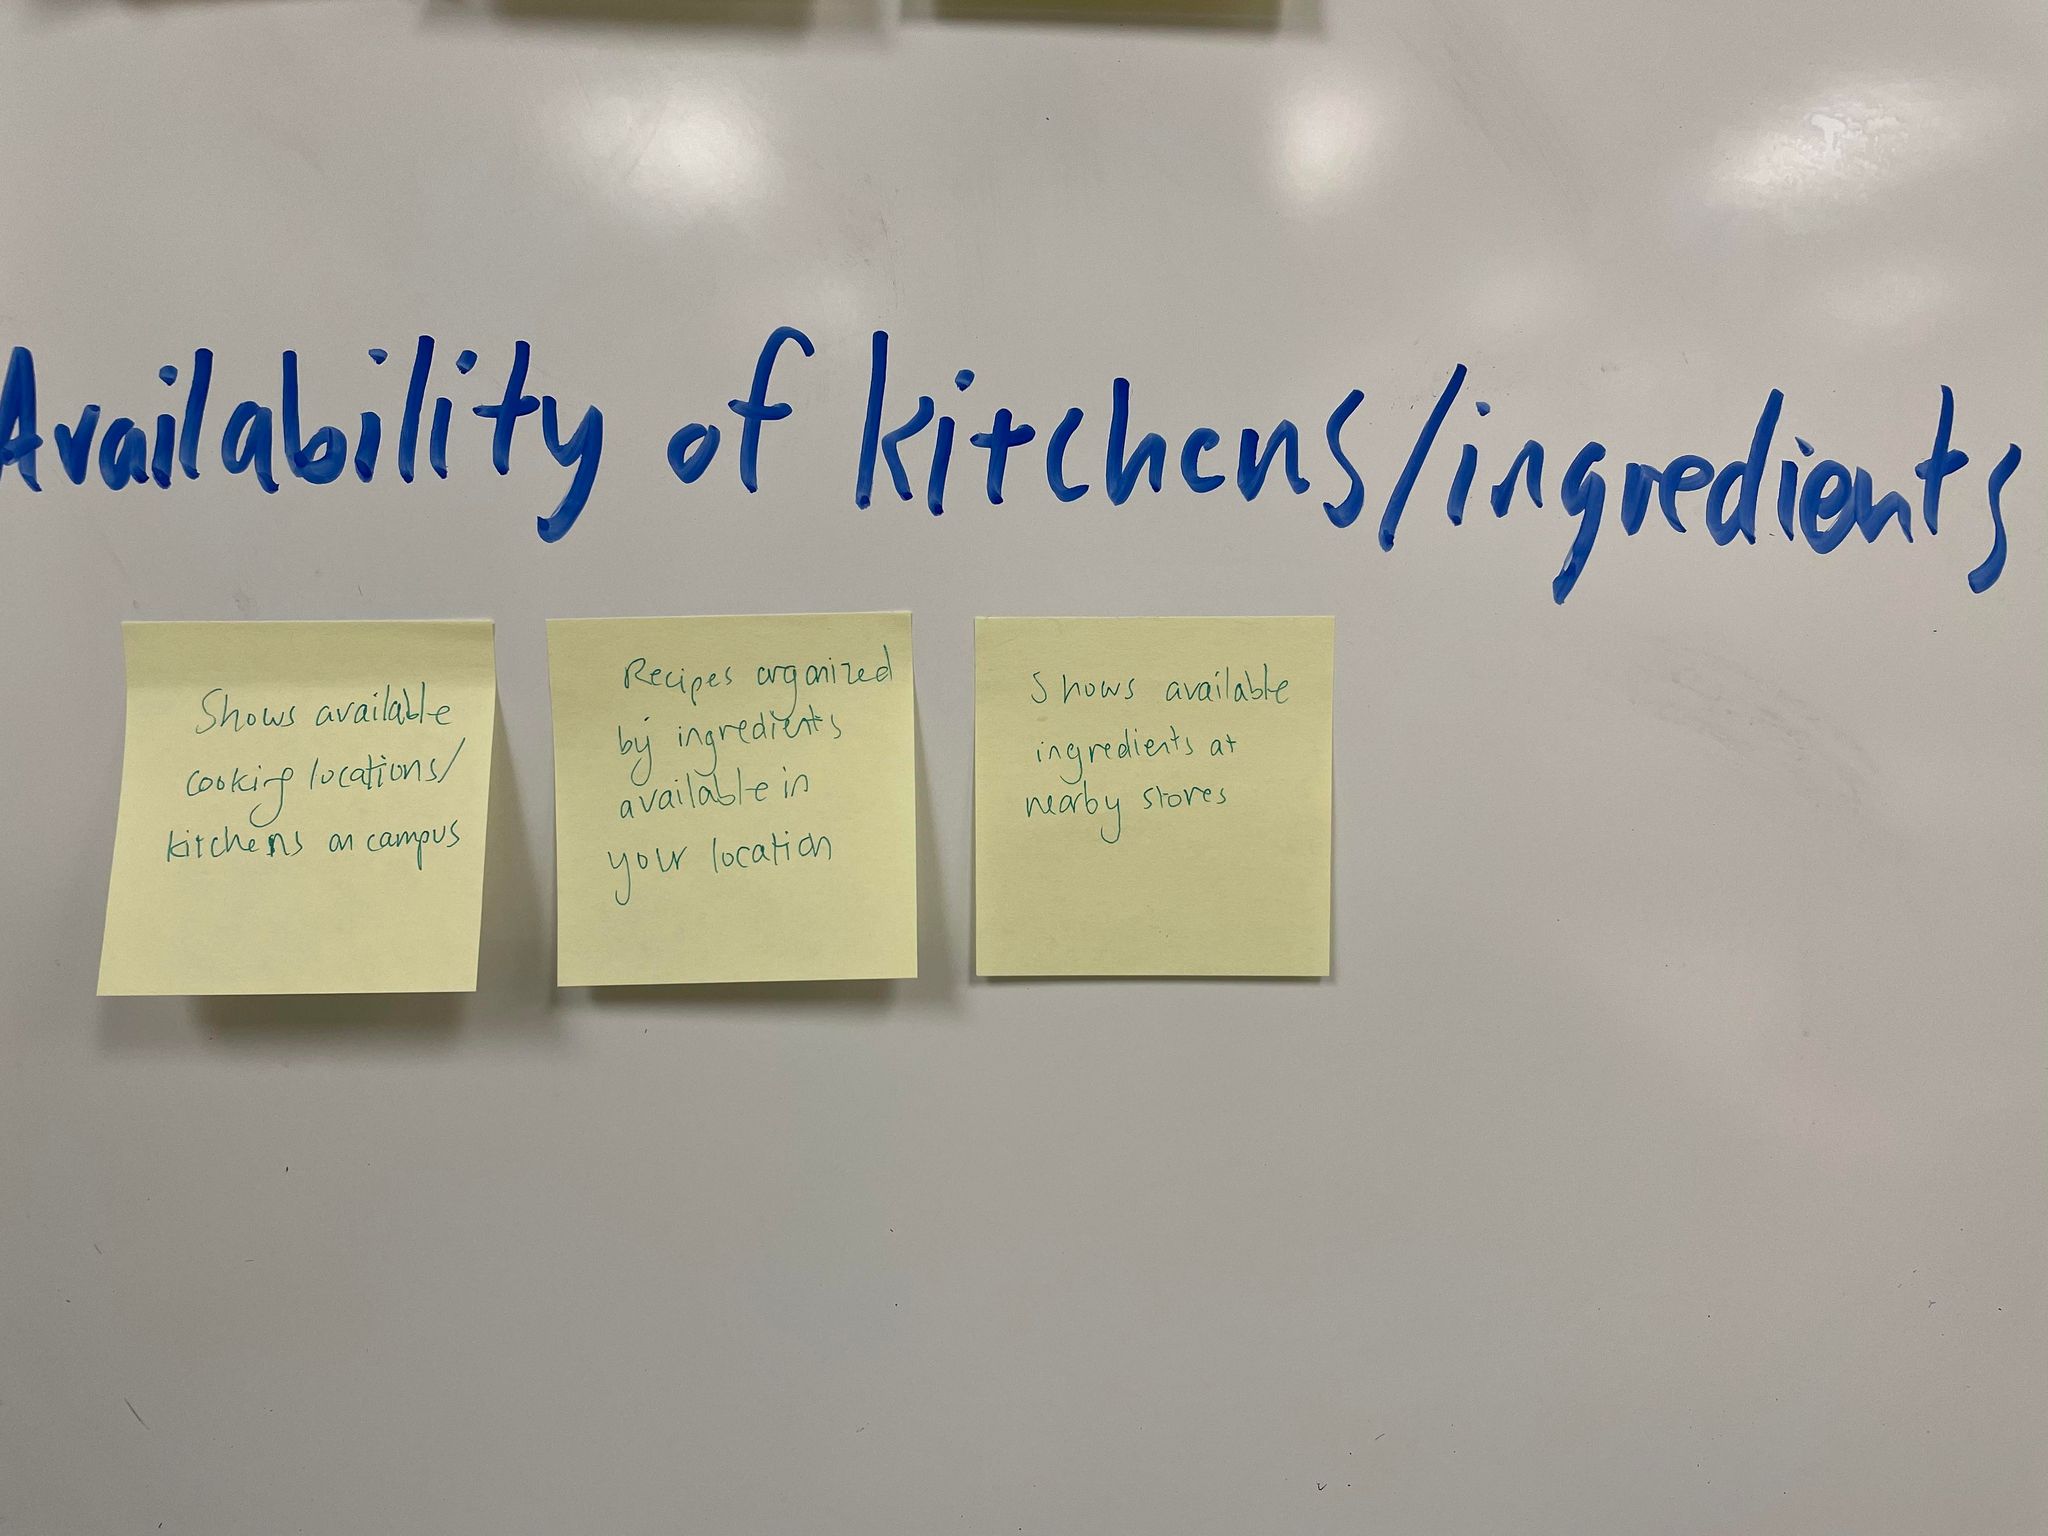 Availability of kitchens/ingredients
Shows available
cooking locations/
kitchens on campus
Recipes organized
by ingredients
available in
your location
Shows available
ingredients at
nearby stores